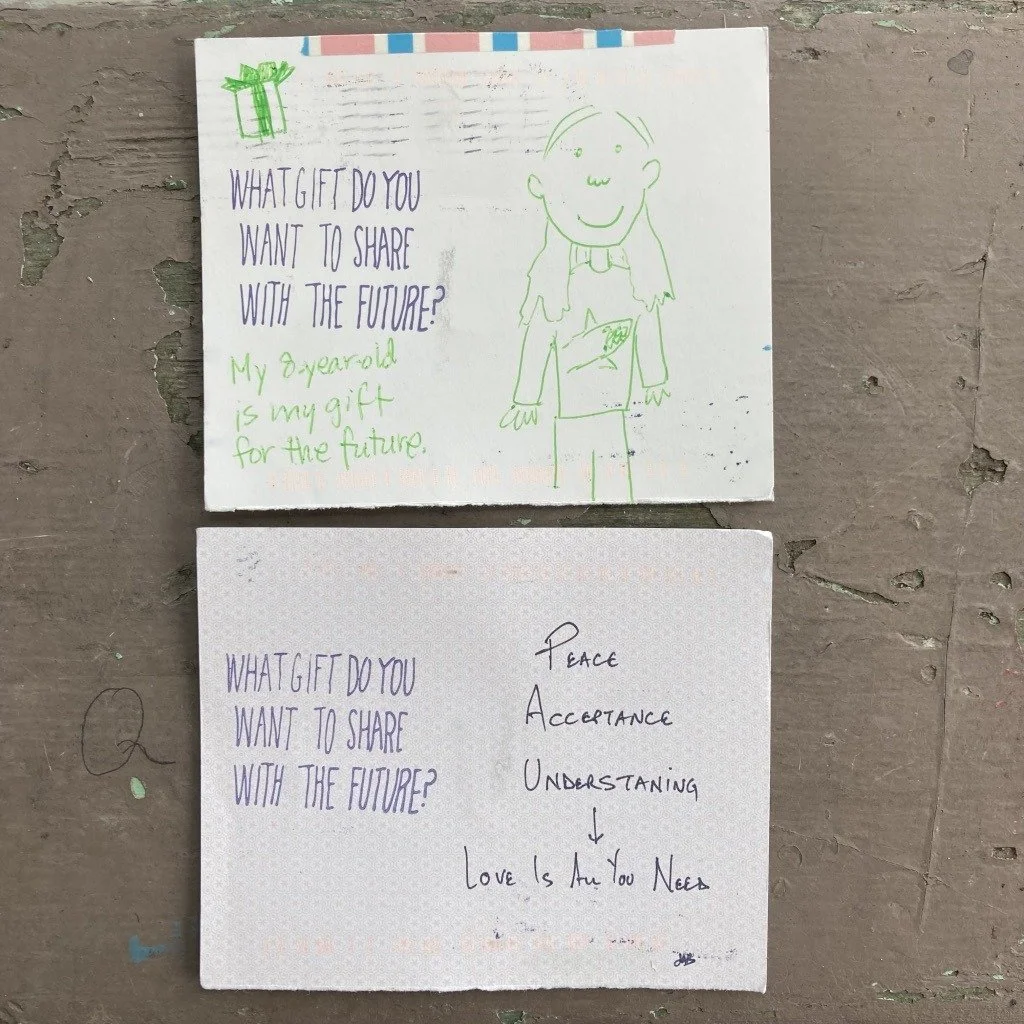 WHAT GIFT DO YOU
WANT TO SHARE
WITH THE FUTURE?
My 8-year-old
is my gift
for the future.
WHAT GIFT DO YOU
WANT TO SHARE
WITH THE FUTURE?
PEACE
ACCEPTANCE
UNDERSTANING
↓
LOVE IS ALL YOU NEED
Q